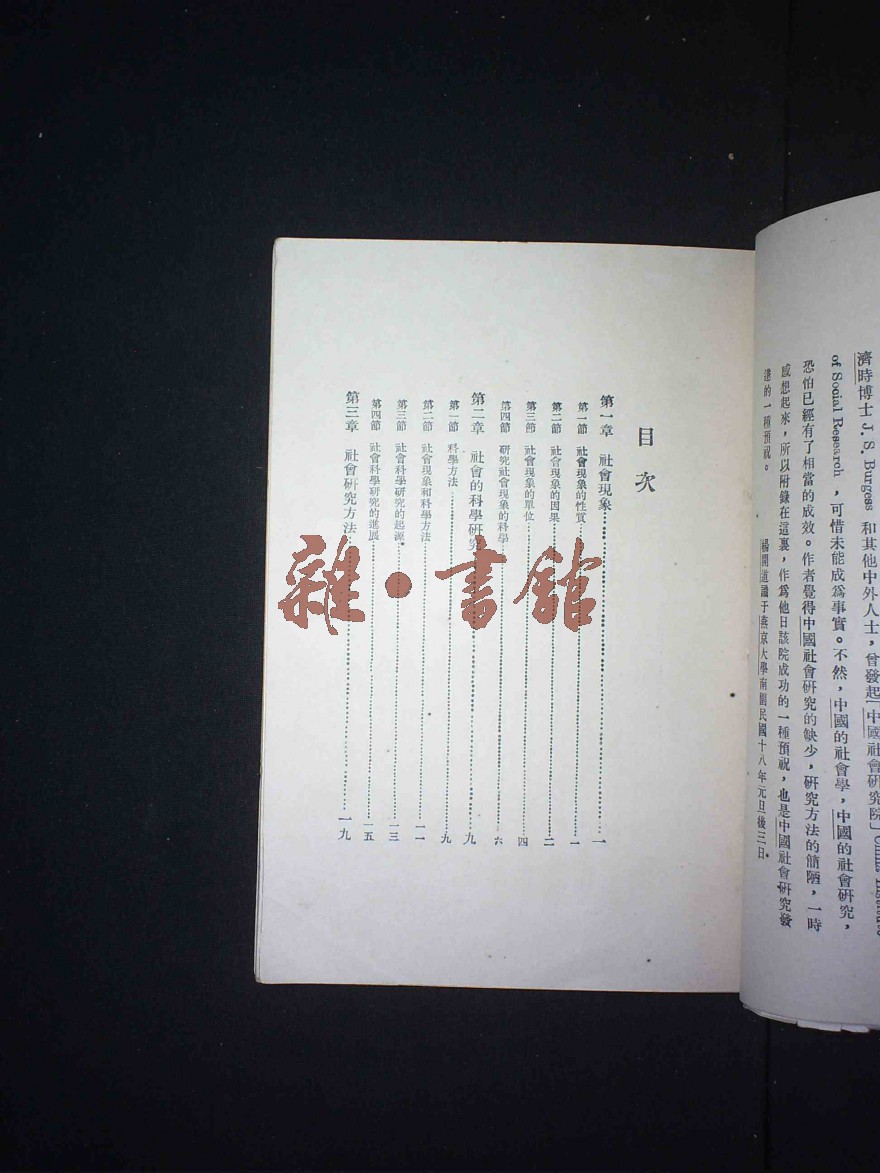 濟時博士 J. S. Burgess 和其他中外人士，曾發起「中國社會研究院」China Institute
of Social Research，可惜未能成爲事實。不然，中國的社會學，中國的社會研究，
恐怕已經有了相當的成效。作者覺得中國社會研究的缺少，研究方法的簡陋，一時
感想起來，所以附錄在這裏，作爲他日該院成功的一種預祝，也是中國社會研究發
達的一種預祝。
楊開道識于燕京大學南園民國十八年元旦後三日。
目次
第一章 社會現象……一
第一節 社會現象的性質……一
第二節 社會現象的因果……二
第三節 社會現象的單位……四
第四節 研究社會現象的科學……六
第二章 社會的科學研究……九
第一節 科學方法……九
第二節 社會現象和科學方法……一一
第三節 社會科學研究的起源……一三
第四節 社會科學研究的進展……一五
第三章 社會研究方法……一九
雜·書館